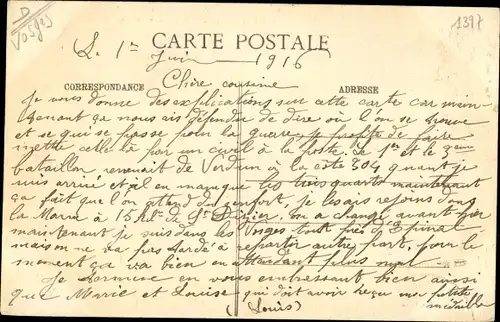 D
Vosges
1397
CARTE POSTALE
L. 1er Juin 1916
CORRESPONDANCE
ADRESSE
Chère cousine
Je vous donne des explications sur cette carte car main-
tenant ça nous ait défendu de dire où l'on se trouve
et se qui se passe pour la guerre, je profite de faire
mettre celle là par un civil à la poste. Le 1er et le 3eme
bataillon revenait de Verdun à la côte 304 quant je
suis arrivé et il en manque les trois quarts maintenant
ça fait que l'on attend du renfort, je les ais rejoins dans
la Marne à 15 kil. de St Dizier, on a changé avant hier
maintenant je suis dans les Vosges tout près d'Epinal
mais on ne va pas tardé à repartir autre part, pour le
moment ça va bien en attendant plus mal
Je termine en vous embrassant bien ainsi
que Marie et Louise qui doit avoir reçu ma petite
médaille
(Louis)